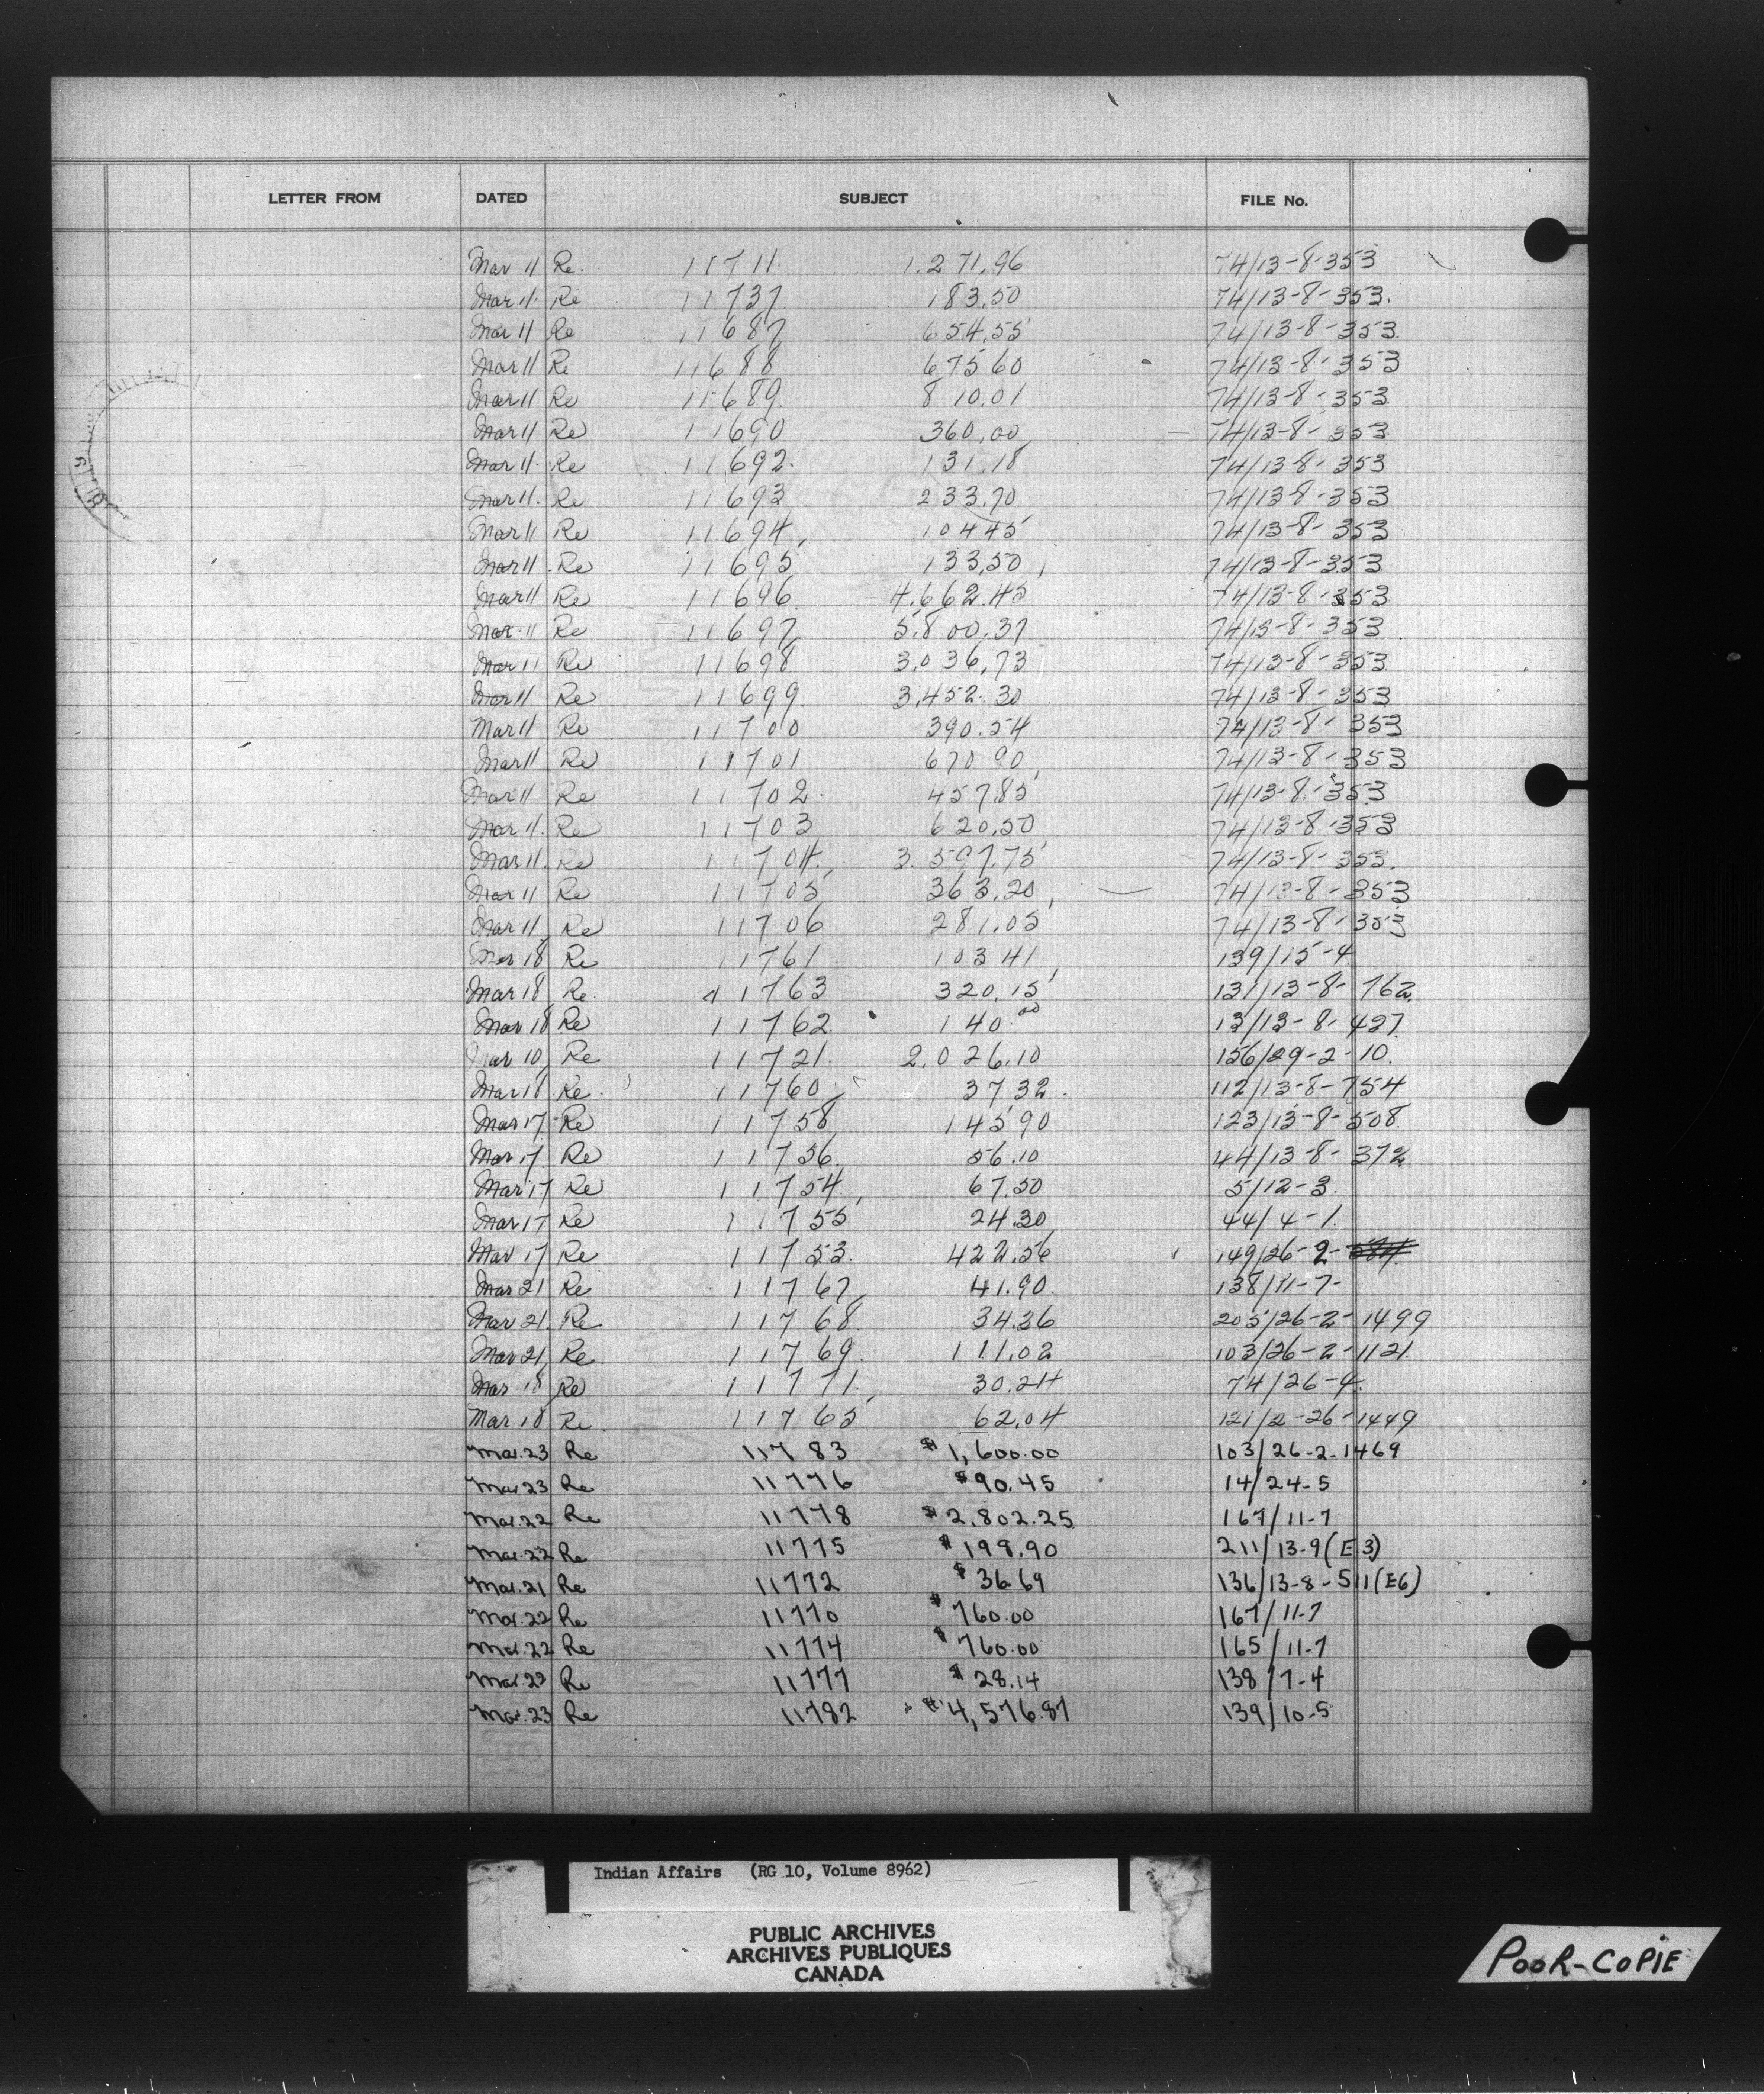 LETTER FROM DATED SUBJECT FILE No.
Mar 11 Re. 11711. 1.271.96 74/13-8-353
Mar 11. Re 11737 183.50 74/13-8-353.
Mar 11 Re 11687 654.55 74/13-8-353.
Mar 11 Re 11688 675 60 74/13-8-353
Mar 11 Re 11689. 810.01 74/13-8-353.
Mar 11 Re 11690 360.00 74/13-8-353
Mar 11. Re 11692. 131.18 74/13-8-353
Mar 11. Re 11693 233.70 74/13-8-353
Mar 11 Re 11694, 104 45 74/13-8-353
Mar 11. Re 11695 133.50, 74/13-8-353
Mar 11 Re 11696. 4.662.45 74/13-8-353
Mar. 11 Re 11697, 5.800.37 74/13-8-353.
Mar 11 Re 11698 3.036,73 74/13-8-353
Mar 11 Re 11699. 3,452.30 74/13-8-353
Mar 11 Re 11700 390.54 74/13-8-353
Mar 11 Re 11701 670 90, 74/13-8-353
Mar 11 Re 11702. 457.85 74/13-8-353
Mar 11. Re 11703 620.50 74/13-8-353
Mar 11. Re 11704. 3.597.75 74/13-8-353.
Mar 11 Re 11705 363.20, 74/13-8-353
Mar 11 Re 11706 281.05 74/13-8-353
Mar 18 Re 11761 103 41, 139/15-4
Mar 18 Re. 11763 320.15 131/13-8-762.
Mar 18 Re 11762. 140.00 13/13-8-427
Mar 10 Re 11721. 2.026.10 156/29-2-10.
Mar 18 Re. 11760 37 32. 112/13-8-754
Mar 17. Re 11758 145 90 123/13-8-508.
Mar 17 Re 11756. 56.10 44/13-8-372
Mar 17 Re 11754, 67.50 5/12-3.
Mar 17 Re 11755 24.30 44/4-1.
Mar 17 Re 11753. 422.56 149/26-2-
Mar 21 Re 11767, 41.90. 138/11-7-
Mar 21. Re 11768. 34.36 203/26-2-1499
Mar 21, Re. 11769. 111.02 103/26-2-1121.
Mar 18 Re 11771. 30.24 74/26-4.
Mar 18 Re. 11765 62.04 121/2-26-1449
Mar. 23 Re 11783 $1,600.00 103/26-2-1469
Mar 23 Re 11776 $90.45 14/24-5
Mar. 22 Re 11778 $2,802.25 167/11-7
Mar. 22 Re 11775 $198.90 211/13-9(E.3)
Mar. 21 Re 11772 $36.69 136/13-8-511(E6)
Mar. 22 Re 11770 $760.00 167/11-7
Mar. 22 Re 11774 $760.00 165/11-7
Mar. 23 Re 11777 $28.14 138/7-4
Mar. 23 Re 11782 $4,576.87 139/10-5
Indian Affairs (RG 10, Volume 8962)
PUBLIC ARCHIVES
ARCHIVES PUBLIQUES
CANADA
POOR-COPIE